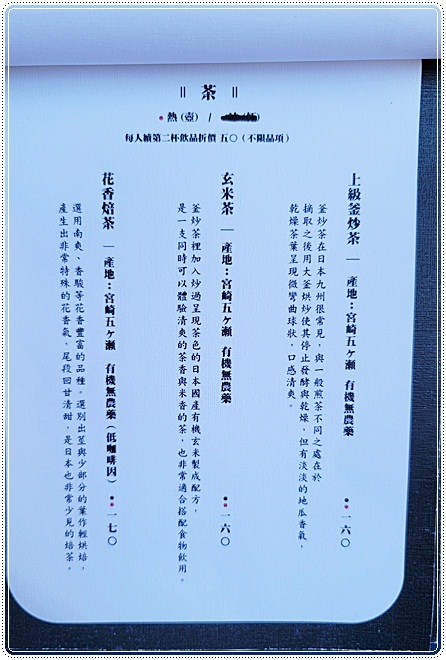 茶
熱(壺) /
每人續第二杯飲品折價 五〇(不限品項)
上級釜炒茶 — 產地:宮崎五ヶ瀨 有機無農藥 一六〇
釜炒茶在日本九州很常見,與一般煎茶不同之處在於
摘取之後用大釜烘炒使其停止發酵與乾燥,但有淡淡的地瓜香氣,
乾燥茶葉呈現微彎曲球狀,口感清爽。
玄米茶 — 產地:宮崎五ヶ瀨 有機無農藥 一六〇
釜炒茶裡加入炒過呈現茶色的日本國產有機玄米製成配方,
是一支同時可以體驗清爽的茶香與米香的茶,也非常適合搭配食物飲用。
花香焙茶 — 產地:宮崎五ヶ瀨 有機無農藥(低咖啡因) 一七〇
選用南爽、香駿等花香豐富的品種。選別出莖與少部分的葉作輕烘焙,
產生出非常特殊的花香氣,尾段回甘清甜,是日本也非常少見的焙茶。